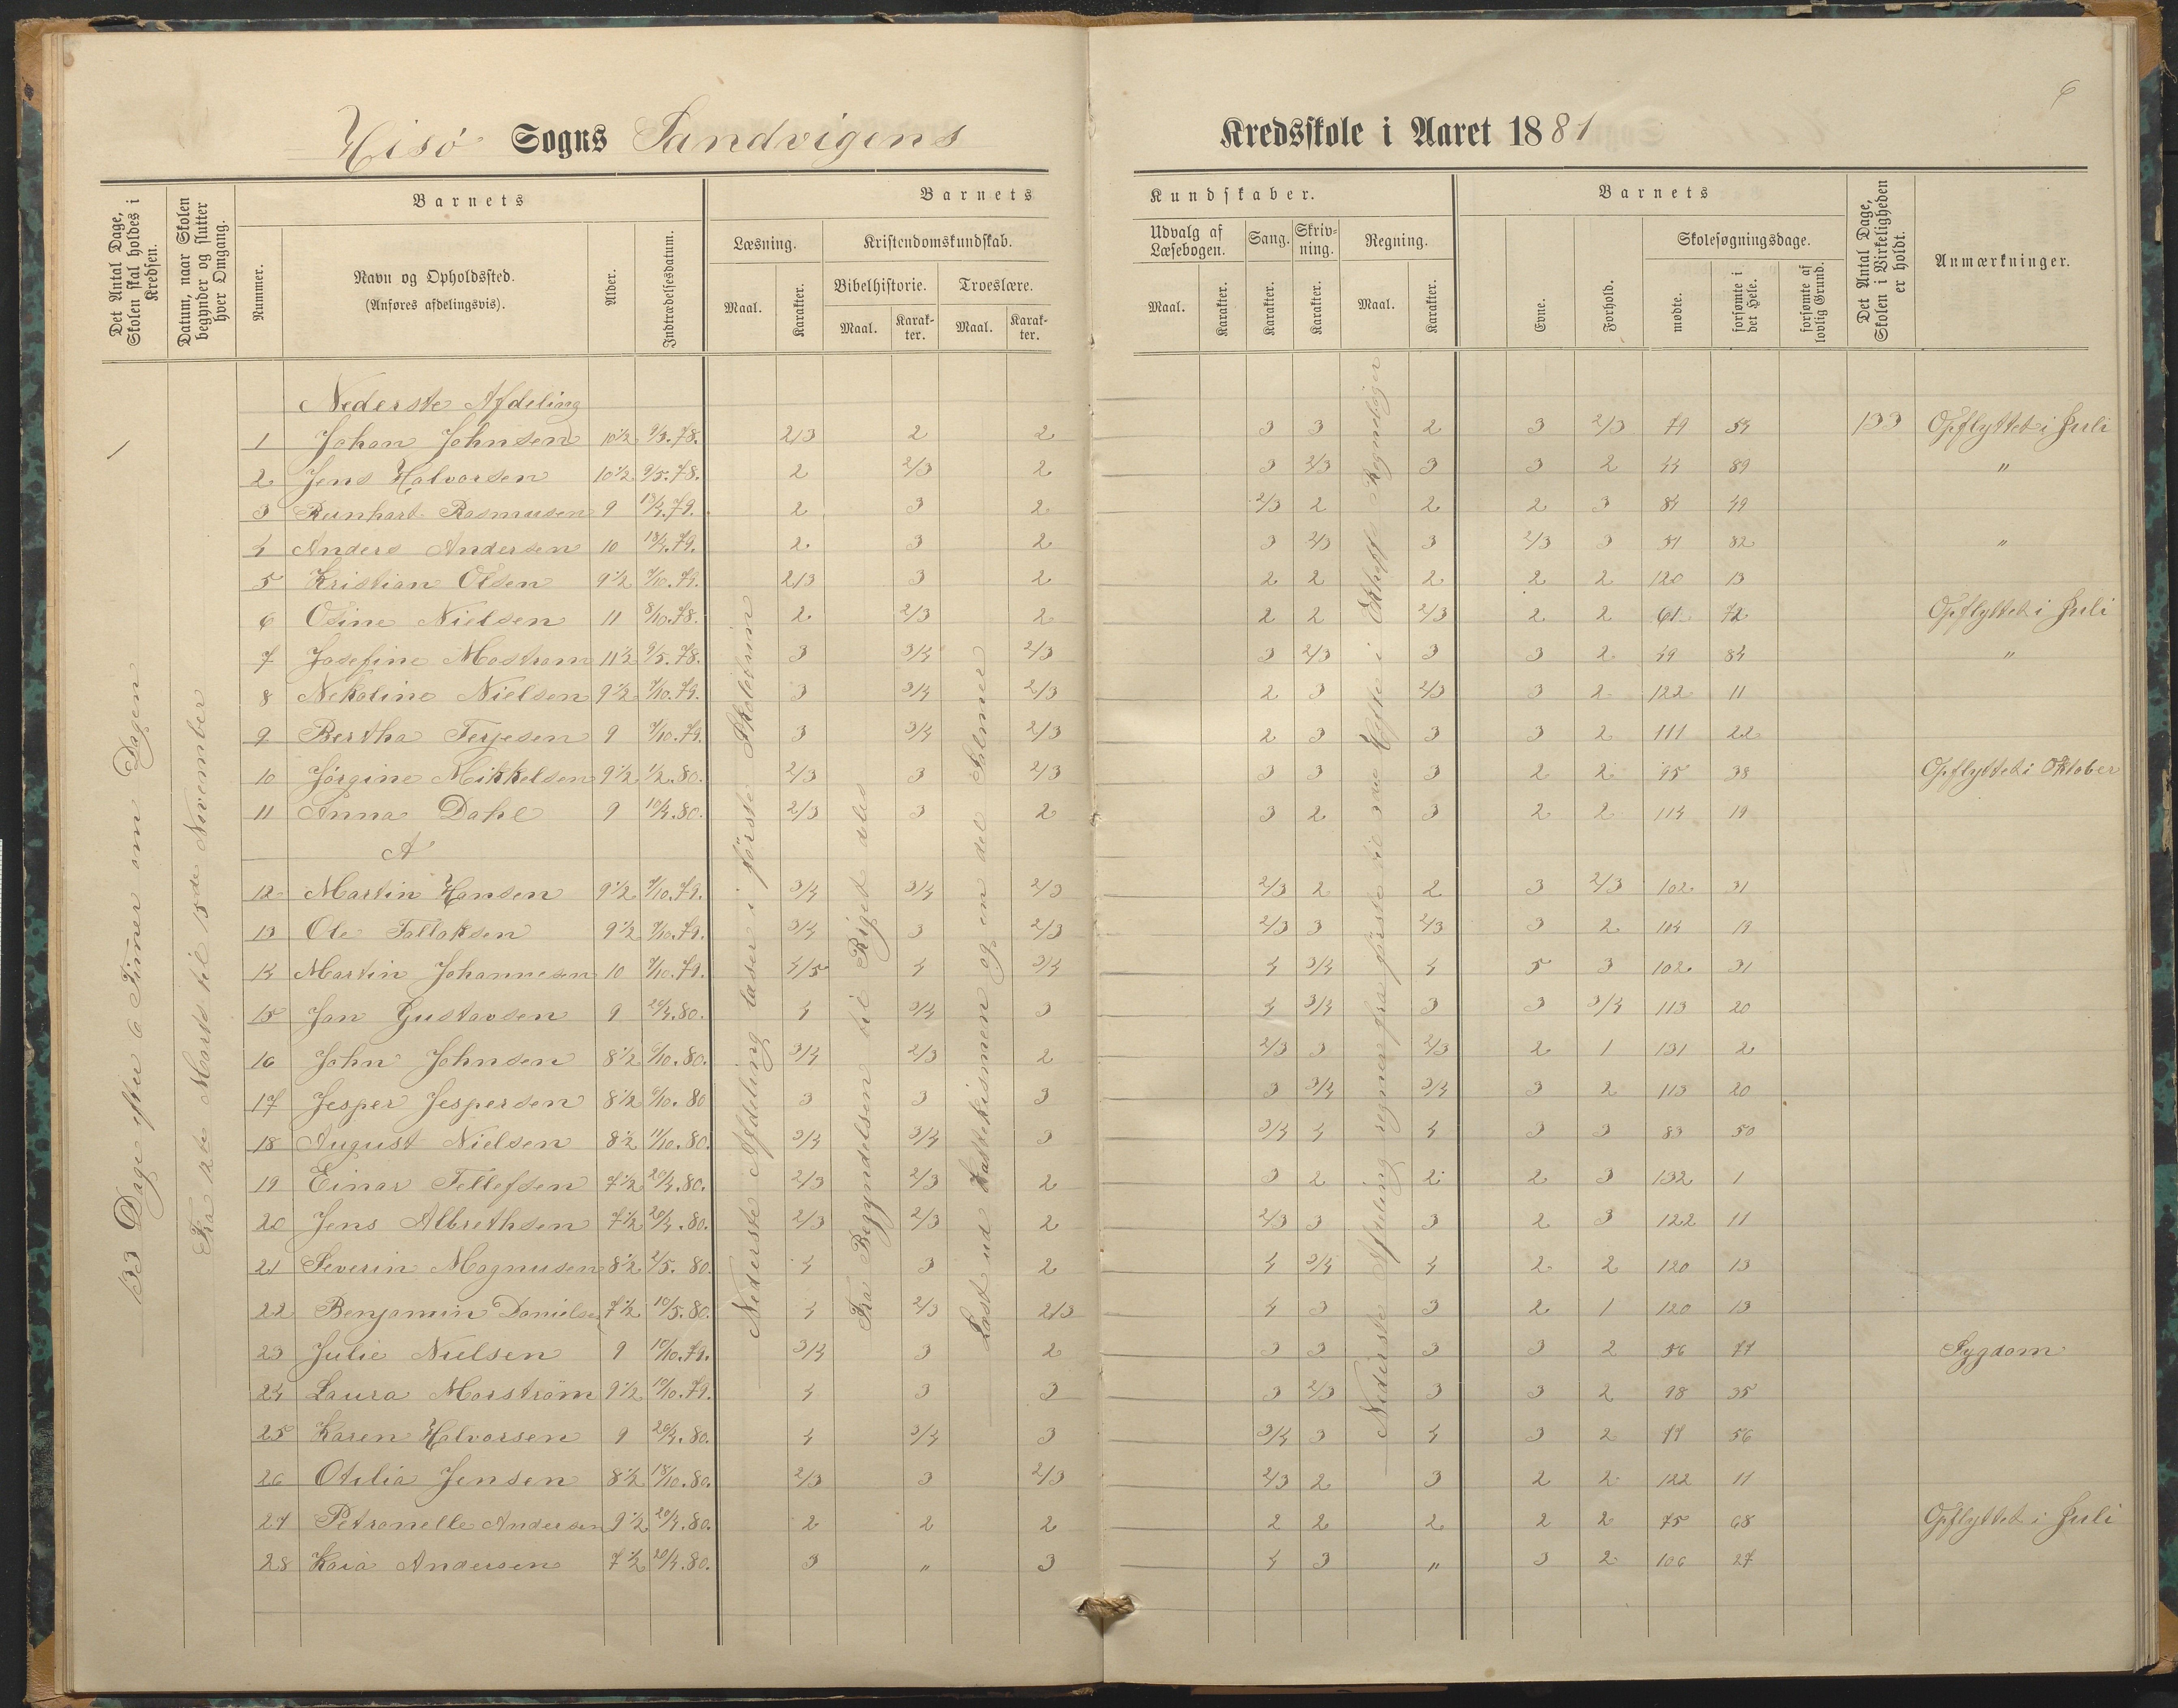 6
Hisö Sogns Sandvigens Kredsskole i Aaret 1881
Det Antal Dage, Skolen skal holdes i Kredsen.
Datum, naar Skolen begynder og slutter hver Omgang.
Nummer.
Barnets
Navn og Opholdssted.
(Anføres afdelingsvis).
Alder.
Indtrædelsesdatum.
Barnets Kundskaber.
Læsning.
Maal.
Karakter.
Kristendomskundskab.
Bibelhistorie.
Troeslære.
Maal.
Karakter.
Maal.
Karakter.
Udvalg af Læsebogen.
Maal.
Karakter.
Sang.
Karakter.
Skrivning.
Karakter.
Regning.
Maal.
Karakter.
Barnets
Evne.
Forhold.
Skolesøgningsdage.
mødte.
forsømte i det Hele.
forsømte af lovlig Grund.
Det Antal Dage, Skolen i Virkeligheden er holdt.
Anmærkninger.
133 Dage efter 6 Timer om Dagen
Fra 12te Marts til 15de November
Nederste Afdeling læser i første Skoletrin
Fra Begyndelsen til Riget deles
Læst ud Katekismen og en del Salmer
Nederste Afdeling regner fra første til Hefte i Regnebøger
Nederste Afdeling
1 Johan Johnsen 10½ 9/3.78. 2/3 2 2 3 3 2 3 2/3 79 54 133 Opflyttet i Juli
2 Jens Halvorsen 10½ 9/5.78. 2 2/3 2 3 2/3 3 3 2 44 89 "
3 Reinhart Rasmusen 9 13/4.79. 2 3 2 2/3 2 2 2 3 84 49
4 Anders Andersen 10 13/4.79. 2 3 2 3 2/3 3 2/3 3 51 82 "
5 Kristian Olsen 9½ 7/10.79. 2/3 3 2 2 2 2 2 2 120 13
6 Osine Nielsen 11 8/10.78. 2 2/3 2 2 2 2/3 2 2 61 72 Opflyttet i Juli
7 Josefine Mostrom 11½ 9/5.78. 3 3/4 2/3 3 2/3 3 3 2 49 84 "
8 Nekoline Nielsen 9½ 7/10.79. 3 3/4 2/3 2 3 2/3 3 2 122 11
9 Bertha Terjesen 9 7/10.79. 3 3/4 2/3 2 3 3 3 2 111 22
10 Jörgine Mikkelsen 9½ ½.80. 2/3 3 2/3 3 3 3 2 2 95 38 Opflyttet i Oktober
11 Anna Dahl 9 10/4.80. 2/3 3 2 3 2 3 2 2 114 19
A
12 Martin Hansen 9½ 7/10.79. 3/4 3/4 2/3 2/3 2 2 3 2/3 102 31
13 Ole Tallaksen 9½ 7/10.79. 3/4 3 2/3 2/3 3 2/3 3 2 114 19
14 Martin Johannesen 10 7/10.79. 4/5 4 3/4 4 3/4 4 5 3 102 31
15 Jan Gustavsen 9 20/4.80. 4 3/4 3 4 3/4 3 3 3/4 113 20
16 John Johnsen 8½ 6/10.80. 3/4 2/3 2 2/3 3 2/3 2 1 131 2
17 Jesper Jespersen 8½ 6/10.80 3 3 3 3 3/4 3/4 3 2 113 20
18 August Nielsen 8½ 11/10.80. 3/4 3/4 3 3/4 4 4 3 3 83 50
19 Einar Tellefsen 7½ 20/4.80. 2/3 2/3 2 3 2 2 2 3 132 1
20 Jens Albrethsen 7½ 20/4.80. 2/3 2/3 2 2/3 3 3 2 3 122 11
21 Severin Magnusen 8½ 2/5.80. 4 3 2 4 3/4 4 2 2 120 13
22 Benjamin Danielsen 7½ 10/5.80. 4 2/3 2/3 4 3 3 2 1 120 13
23 Julie Nielsen 9 10/10.79. 3/4 3 2 3 3 3 3 2 56 77 Sygdom
24 Laura Morström 9½ 10/10.79. 4 3 3 3 2/3 3 3 2 98 35
25 Karen Halvorsen 9 20/4.80. 4 3/4 3 3/4 3 4 3 2 77 56
26 Otilia Jensen 8½ 18/10.80. 2/3 3 2/3 2/3 2 3 2 2 122 11
27 Petronelle Andersen 9½ 20/4.80. 2 2 2 2 2 2 2 2 75 68 Opflyttet i Juli
28 Kaia Andersen 7½ 20/4.80. 3 " 3 4 3 " 3 2 106 27